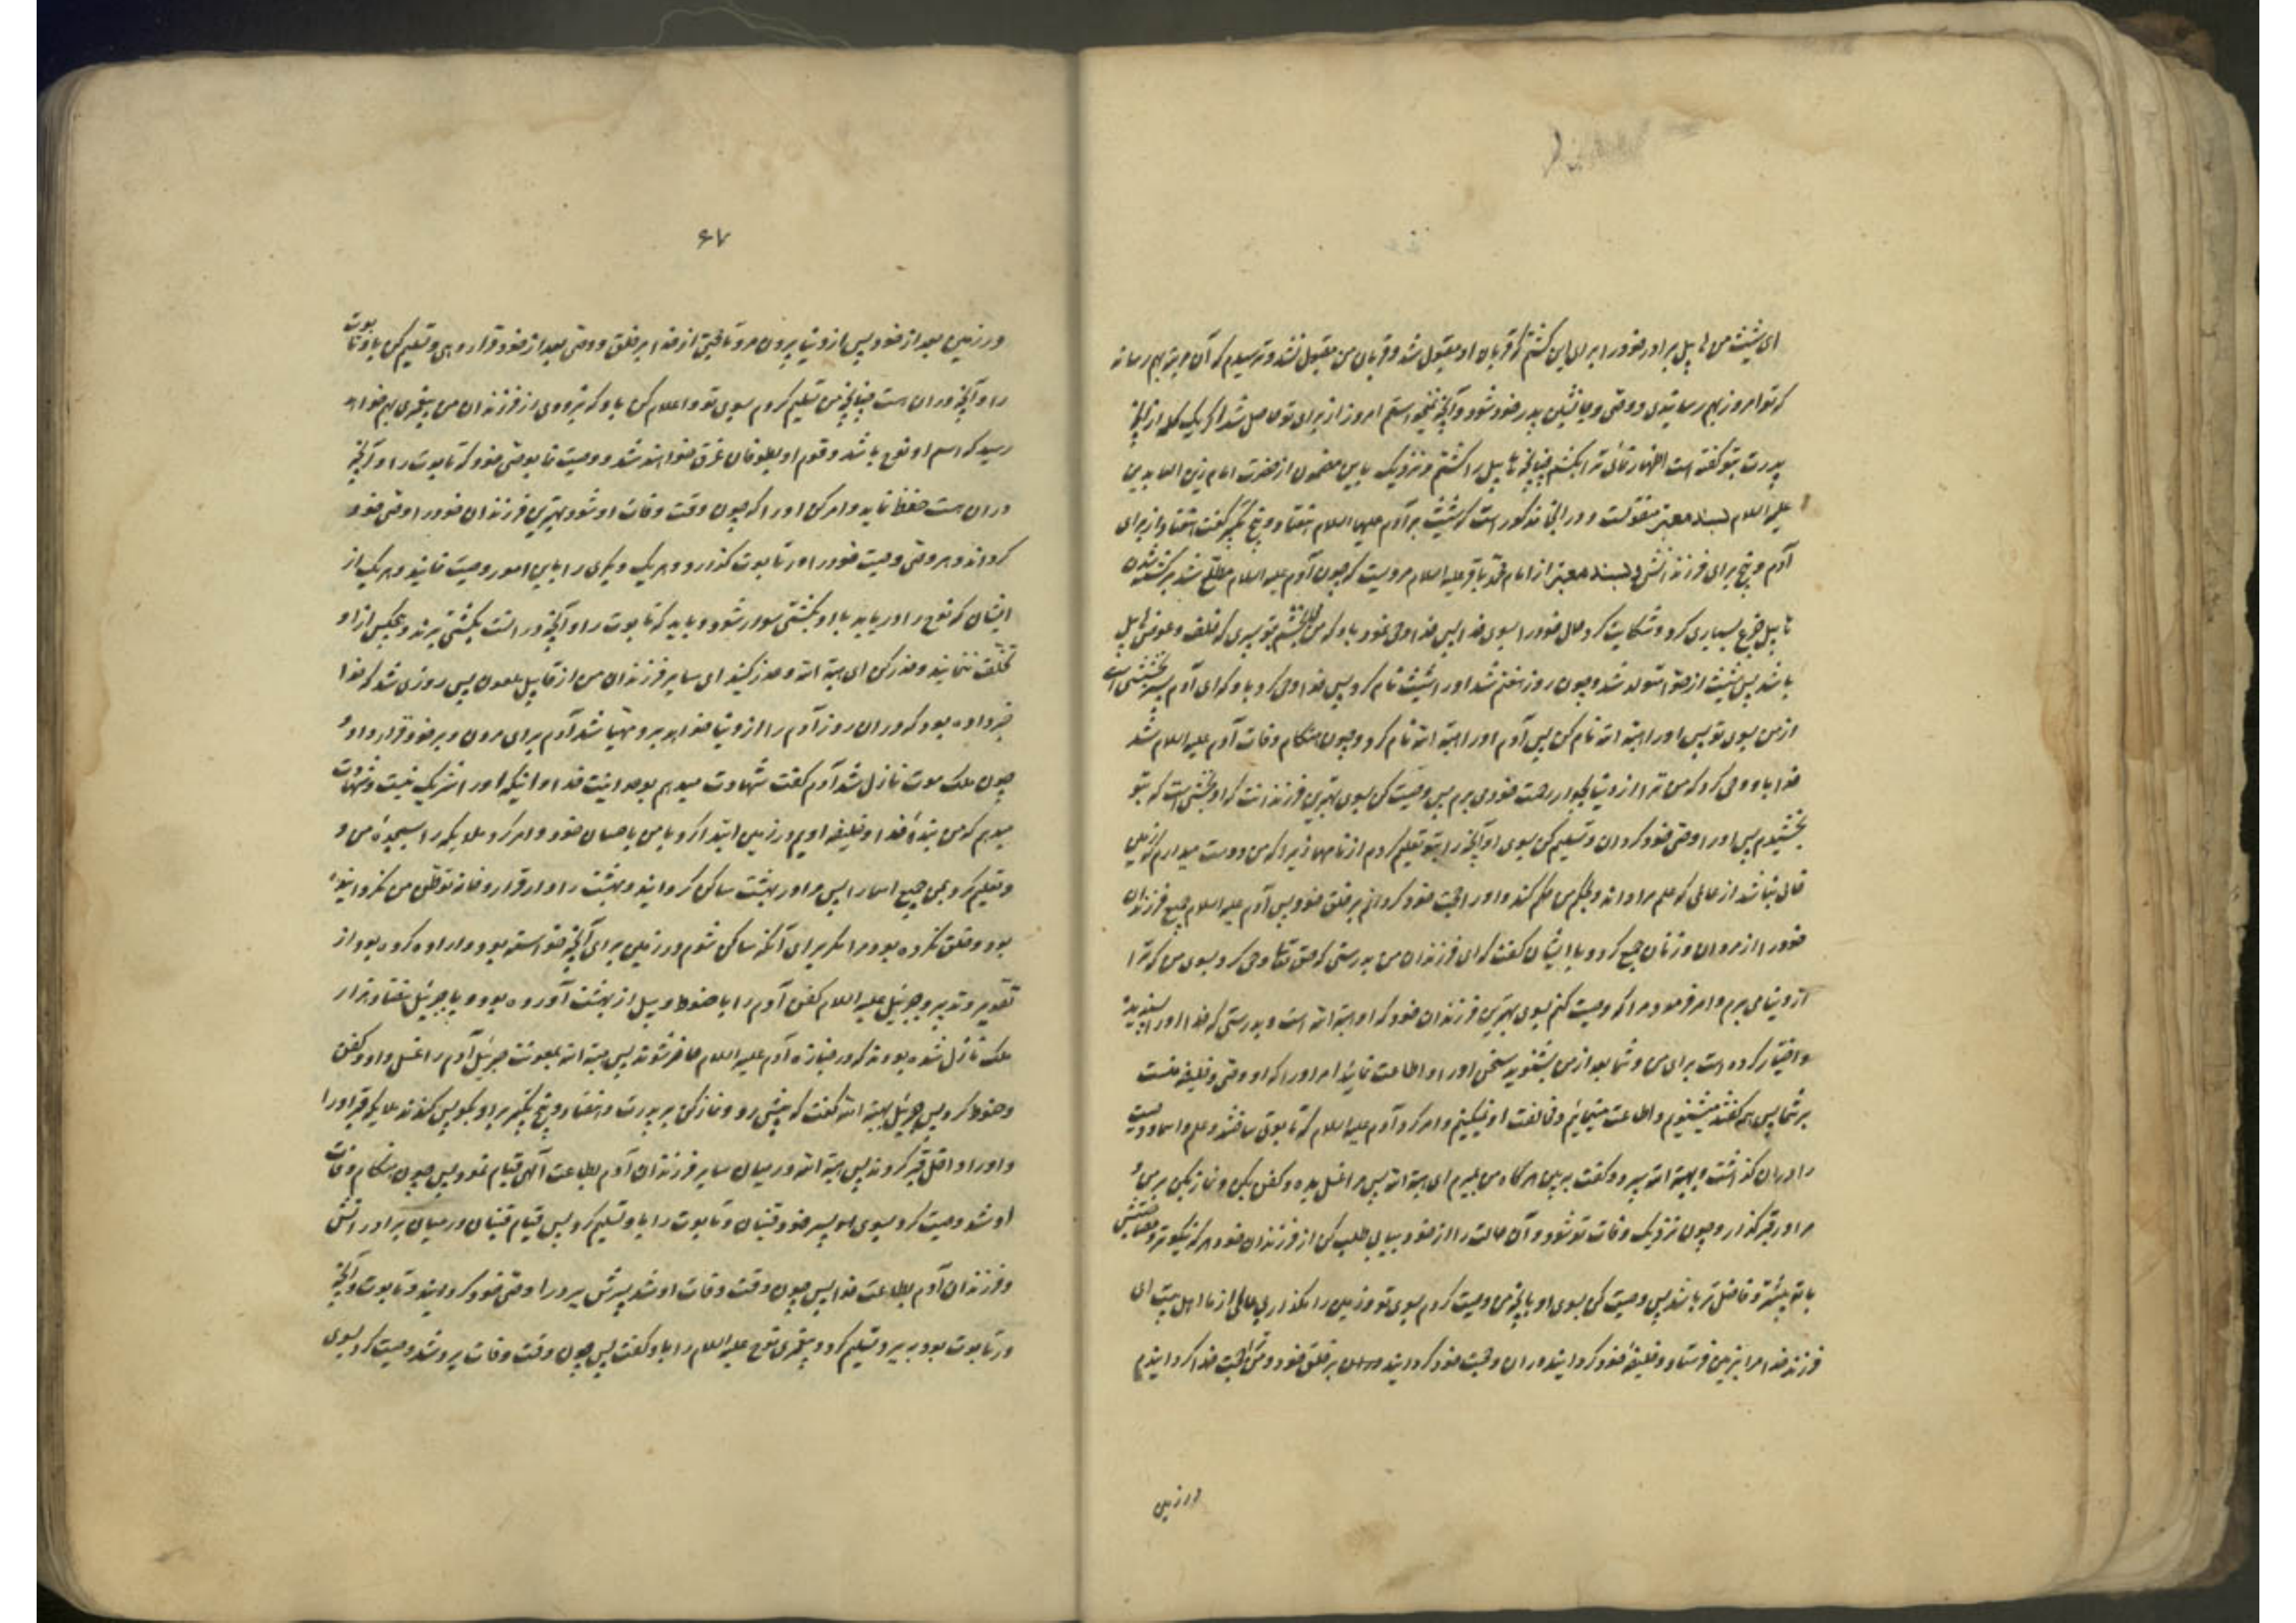 ای شیث من هابیل برادر خود را برای این کشتم که قربان او مقبول شد و قربان من مقبول نشد و ترسیدم که آن مرتبه بهم رساند
که تو امروز بهم رسانیدی و وصی و جانشین پدر خود شود و آنچه نمیخواستم امروز از برای تو حاصل شد اگر یک کلمه از آنچه
پدرت بتو گفته است اظهار نمائی ترا بکشم چنانچه هابیل را کشتم و نزدیک باین مضمون از حضرت امام زین العابدین
علیه السلام بسند معتبر منقولست و در آنجا مذکور است که شیث بر آدم علیهما السلام هفتاد و پنج تکبیر گفت هفتاد از برای
آدم و پنج برای فرزندانش و بسند معتبر از امام محمد باقر علیه السلام مرویست که چون آدم علیه السلام مطلع شد بر کشته شدن
هابیل جزع بسیاری کرد و شکایت کرد حال خود را بسوی خدا پس خدا وحی نمود باو که من میبخشم بتو پسری که خلف و عوض هابیل
باشد پس شیث از حوا متولد شد و چون روز هفتم شد او را شیث نام کرد پس خدا وحی کرد باو که ای آدم این پسر بخششی است
از من بسوی تو پس او را هبة الله نام کن پس آدم او را هبة الله نام کرد و چون هنگام وفات آدم علیه السلام شد
خدا باو وحی کرد که من ترا از دنیا بجوار رحمت خود می برم پس وصیت کن بسوی بهترین فرزندانت که او بخششی است که بتو
بخشیدم پس او را وصی خود گردان و تسلیم کن بسوی او آنچه را بتو تعلیم کردم از نامها زیرا که من دوست میدارم که زمین
خالی نباشد از عالمی که علم مرا داند و بحکم من حکم کند و او را حجت خود گردانم بر خلق خود پس آدم علیه السلام جمیع فرزندان
خود را از مردان و زنان جمع کرد و با ایشان گفت که ای فرزندان من بدرستی که حق تعالی وحی کرد بسوی من که ترا
از دنیا می برم و امر فرمود مرا که وصیت کنم بسوی بهترین فرزندان خود که او هبة الله است و بدرستی که خدا او را پسندیده
و اختیار کرده است برای من و شما بعد از من بشنوید سخن او را و اطاعت نمائید امر او را که او وصی و خلیفه منست
بر شما پس همه گفتند میشنویم و اطاعت مینمائیم و مخالفت او نمیکنیم و امر کرد آدم علیه السلام که تابوتی ساختند و علم و اسما و وصیت
را در آن گذاشت و بهبة الله سپرد و گفت ببین هرگاه من بمیرم ای هبة الله پس مرا غسل بده و کفن بکن و نماز بکن بر من و
مرا در قبر گذار و چون نزدیک وفات تو شود و آن حالت را از خود بیابی طلب کن از فرزندان خود هر که نیکوتر و مصاحبتش
با تو بیشتر و فاضل تر باشد پس وصیت کن بسوی او بآنچه من وصیت کردم بسوی تو و زمین را مگذار بی عالمی از ما اهل بیت ای
فرزند خدا مرا بزمین فرستاد و خلیفه خود گردانید در آن و حجت خود گردانید در آن بر خلق خود و من ترا حجت خدا گردانیدم
در زمین
۶۷
در زمین بعد از خود پس از دنیا بیرون مرو تا حجتی از خدا بر خلق و وصی بعد از خود قرار دهی و تسلیم کن باو تابوت
را و آنچه در آن است چنانچه من تسلیم کردم بسوی تو و اعلام کن باو که بزودی از فرزندان من پیغمبری بهم خواهد
رسید که اسم او نوح باشد و قوم او بطوفان غرق خواهند شد و وصیت نما بوصی خود که تابوت را و آنچه
در آن است حفظ نماید و امر کن او را که چون وقت وفات او شود بهترین فرزندان خود را وصی خود
گرداند و هر وصی وصیت خود را در تابوت گذارد و هر یک دیگری را باین امور وصیت نمایند و هر یک از
ایشان که نوح را دریابد با او بکشتی سوار شود و باید که تابوت را و آنچه در آنست بکشتی برند و هیچکس از او
تخلف ننمایند و حذر کن ای هبة الله و حذر کنید ای سایر فرزندان من از قابیل ملعون پس روزی شد که خدا
خبر داده بود که در آن روز آدم را از دنیا خواهد برد مهیا شد آدم برای مردن و بر خود قرار داد و
چون ملک موت نازل شد آدم گفت شهادت میدهم بوحدانیت خدا و اینکه او را شریک نیست و شهادت
میدهم که من بنده خدا و خلیفه اویم در زمین ابتدا کرد با من باحسان خود و امر کرد ملایکه را بسجده من و
و تعلیم کرد بمن جمیع اسما را پس مرا در بهشت ساکن گردانید و بهشت را دار قرار و خانه توطن من نگردانیده
بود و خلق نکرده بود مرا مگر برای آنکه ساکن شوم در زمین برای آنچه خواسته بود و اراده کرده بود از
تقدیر و تدبیر و جبرئیل علیه السلام کفن آدم را با حنوط و بیل از بهشت آورده بود و با جبرئیل هفتاد هزار
ملک نازل شده بودند که در جنازه آدم علیه السلام حاضر شوند پس هبة الله بمعونت جبرئیل آدم را غسل داد و کفن
و حنوط کرد پس جبرئیل بهبة الله گفت که پیش رو و نماز کن بر پدرت و هفتاد و پنج تکبیر بر او بگو پس کندند ملایکه قبر او را
و او را داخل قبر کردند پس هبة الله در میان سایر فرزندان آدم بطاعت الهی قیام نمود پس چون هنگام وفات
او شد وصیت کرد بسوی پسر خود قینان و تابوت را باو تسلیم کرد پس قیام قینان در میان برادرانش
و فرزندان آدم بطاعت خدا پس چون وقت وفات او شد پسرش یرد را وصی خود گردانید و تابوت و آنچه
در تابوت بود به یرد تسلیم کرد و پیغمبری نوح علیه السلام را باو گفت پس چون وقت وفات یرد شد وصیت کرد بسوی